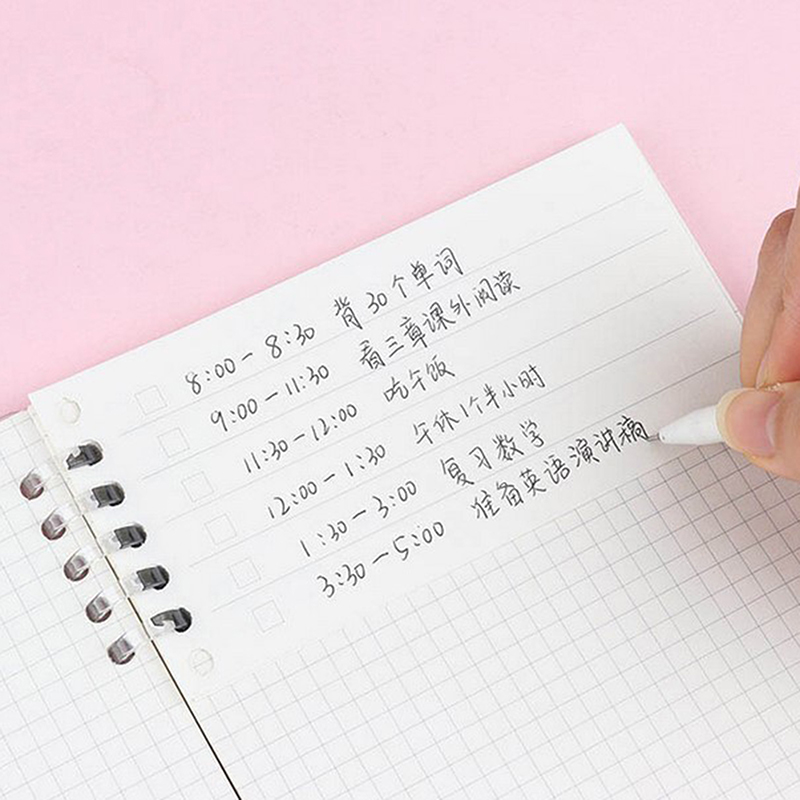 8:00-8:30 背30个单词
9:00-11:30 看三章课外阅读
11:30-12:00 吃午饭
12:00-1:30 午休1个半小时
1:30-3:00 复习数学
3:30-5:00 准备英语演讲稿